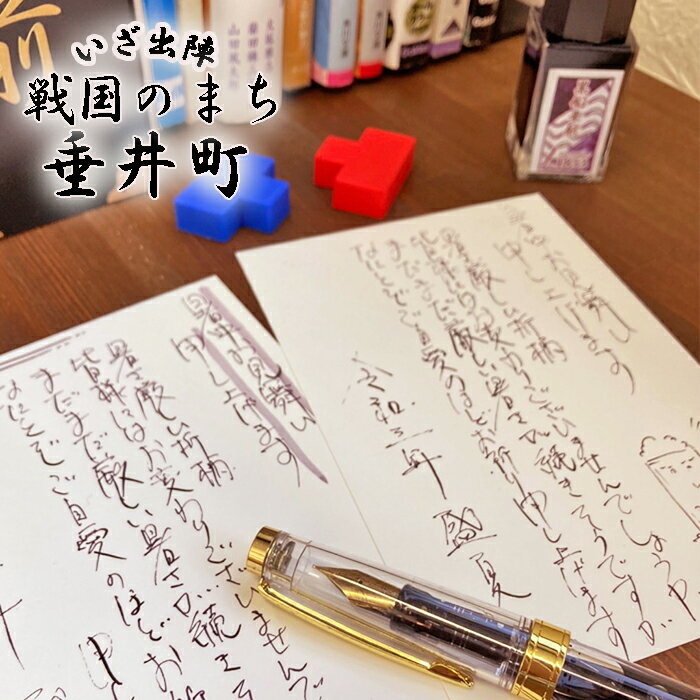 いざ出陣
戦国のまち
垂井町
前
角川文庫
山田風太郎
暑中お見舞い
申し上げます
暑さ厳しい折柄
皆様にはお変わりございませんでしょうか
まだまだ厳しい暑さが続きそうですが
なにとぞご自愛のほどお祈り申し上げます
令和三年 盛夏
暑中お見舞い
申し上げます
暑さ厳しい折柄
皆様にはお変わりございませんで
まだまだ厳しい暑さが続き
なにとぞご自愛のほどお